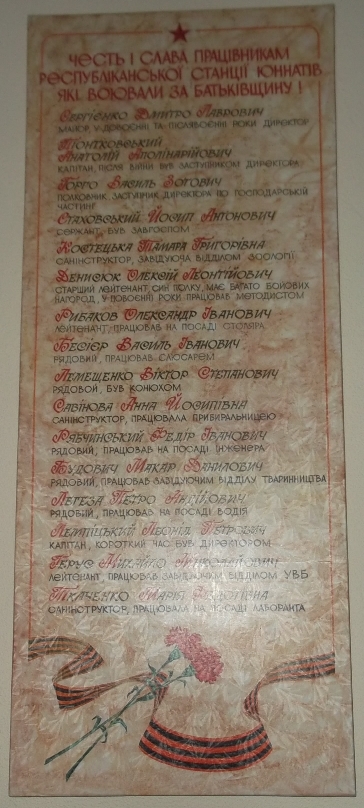 ЧЕСТЬ І СЛАВА ПРАЦІВНИКАМ
РЕСПУБЛІКАНСЬКОЇ СТАНЦІЇ ЮННАТІВ
ЯКІ ВОЮВАЛИ ЗА БАТЬКІВЩИНУ !
Євгієнко Дмитро Лаврович
МАЙОР, У ДОВОЄННІ ТА ПІСЛЯВОЄННІ РОКИ ДИРЕКТОР
Понтковський
Анатолій Аполінарійович
КАПІТАН, ПІСЛЯ ВІЙНИ БУВ ЗАСТУПНИКОМ ДИРЕКТОРА
Василь Зотович
ПОЛКОВНИК ЗАСТУПНИК ДИРЕКТОРА ПО ГОСПОДАРСЬКІЙ
ЧАСТИНІ
Стаховський Йосип Антонович
СЕРЖАНТ, БУВ ЗАВГОСПОМ
Костецька Тамара Григорівна
САНІНСТРУКТОР, ЗАВІДУЮЧА ВІДДІЛОМ ЗООЛОГІЇ
Денисюк Олексій Леонтійович
СТАРШИЙ ЛЕЙТЕНАНТ, СИН ПОЛКУ, МАЄ БАГАТО БОЙОВИХ
НАГОРОД, У ПОВОЄННІ РОКИ ПРАЦЮВАВ МЕТОДИСТОМ
Рибаков Олександр Іванович
ЛЕЙТЕНАНТ, ПРАЦЮВАВ НА ПОСАДІ СТОЛЯРА
Василь Іванович
РЯДОВИЙ, ПРАЦЮВАВ СЛЮСАРЕМ
Лемещенко Віктор Степанович
РЯДОВОЙ, БУВ КОНЮХОМ
Савінова Анна Йосипівна
САНІНСТРУКТОР, ПРАЦЮВАЛА ПРИБИРАЛЬНИЦЕЮ
Рябчинський Федір Іванович
РЯДОВИЙ, ПРАЦЮВАВ НА ПОСАДІ ІНЖЕНЕРА
Будович Макар Данилович
РЯДОВИЙ, ПРАЦЮВАВ ЗАВІДУЮЧИМ ВІДДІЛУ ТВАРИННИЦТВА
Легеза Петро
РЯДОВИЙ, ПРАЦЮВАВ НА ПОСАДІ ВОДІЯ
Леонід Петрович
КАПІТАН, КОРОТКИЙ ЧАС БУВ ДИРЕКТОРОМ
Герус Михайло Миколайович
ЛЕЙТЕНАНТ, ПРАЦЮВАВ ЗАВІДУЮЧИМ ВІДДІЛОМ УВБ
Ткаченко Марія
САНІНСТРУКТОР, ПРАЦЮВАЛА НА ПОСАДІ ЛАБОРАНТА